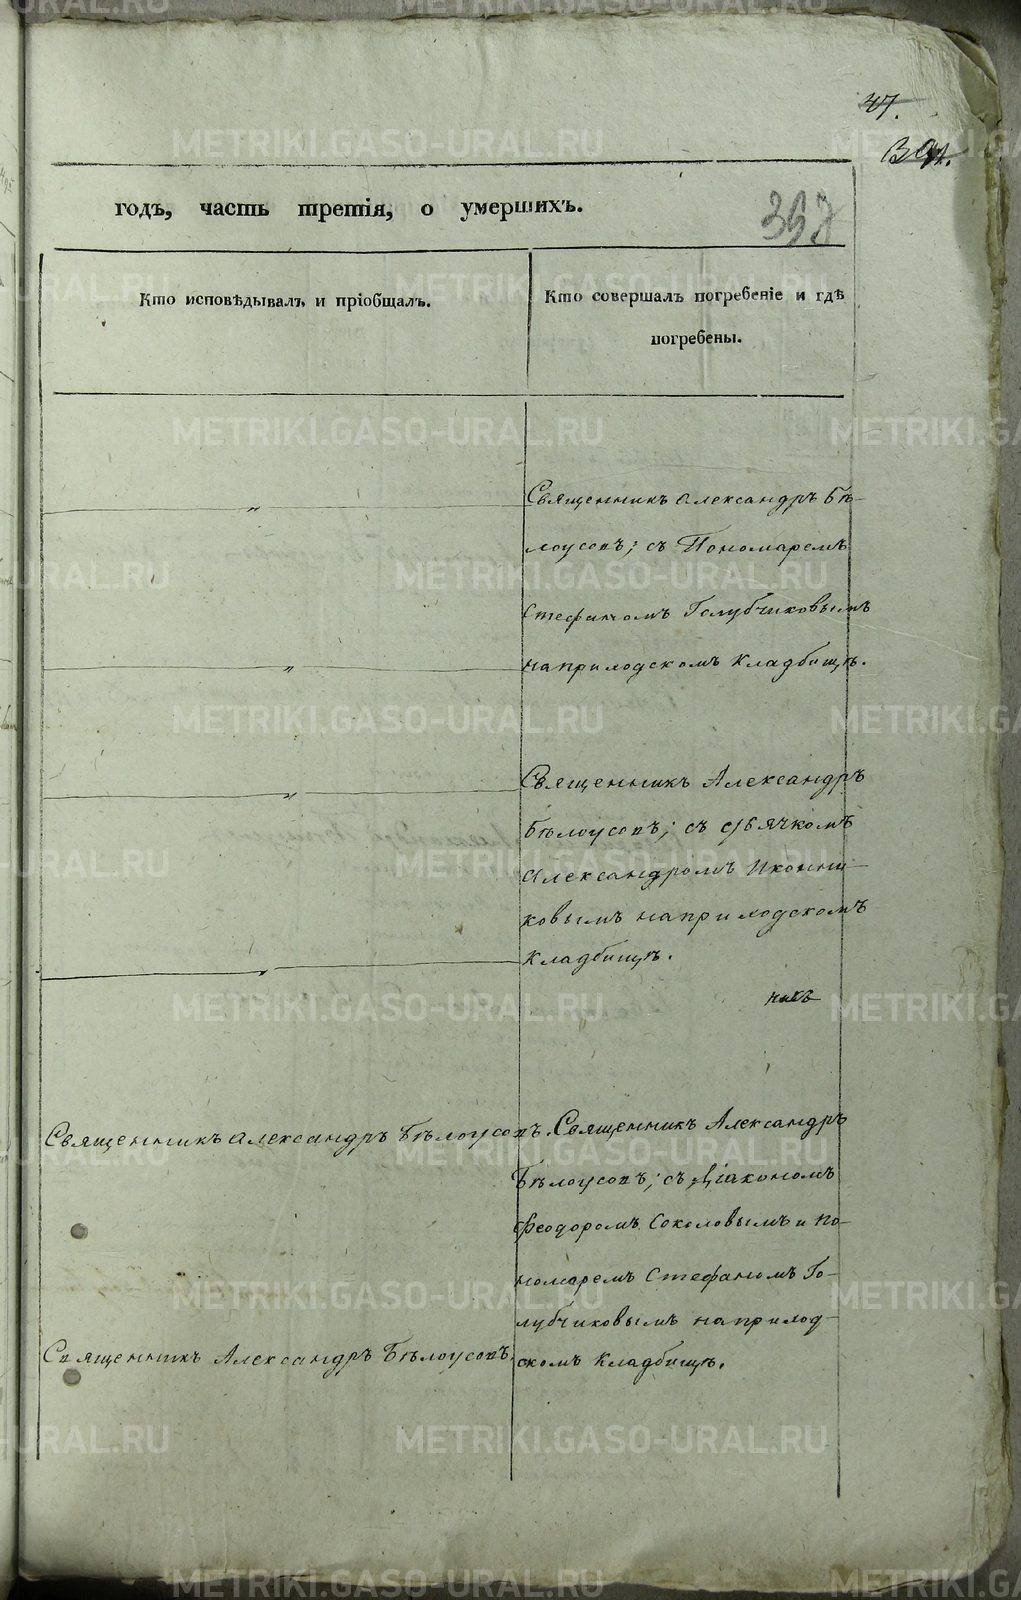 47.
397
годъ, часть третія, о умершихъ.
Кто исповѣдывалъ и пріобщалъ.
Кто совершалъ погребеніе и гдѣ
погребены.
„
Священникъ Александръ Бѣ-
лоусовъ; съ Пономаремъ
Стефаномъ Голубчиковымъ
„
на приходскомъ кладбищѣ.
„
Священникъ Александръ
Бѣлоусовъ; съ дьячкомъ
Александромъ Иконни-
ковымъ на приходскомъ
„
кладбищѣ.
Священникъ Александръ Бѣлоусовъ.
Священникъ Александръ
Бѣлоусовъ; съ Діакономъ
Феодоромъ Соколовымъ и по-
номаремъ Стефаномъ Го-
лубчиковымъ на приход-
Священникъ Александръ Бѣлоусовъ.
скомъ кладбищѣ.
METRIKI.GASO-URAL.RU